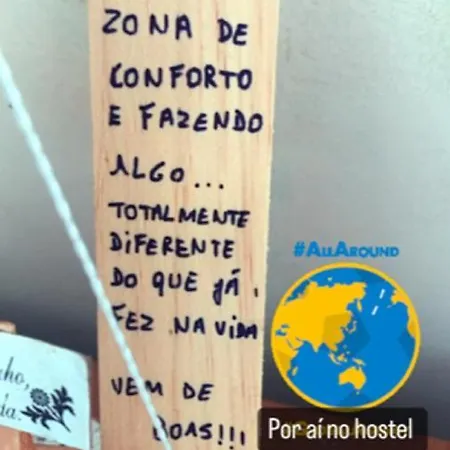 ZONA DE
CONFORTO
E FAZENDO
ALGO...
TOTALMENTE
DIFERENTE
DO QUE JÁ
FEZ NA VIDA
VEM DE
BOAS!!!
#ALLAROUND
Por aí no hostel